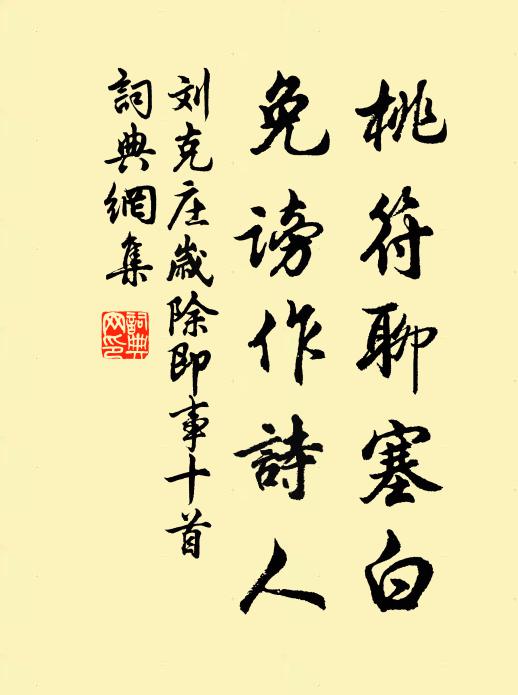 桃符聊塞白
免謗作詩人
刘克庄歲除即事十首
詞典網集
詞典網印